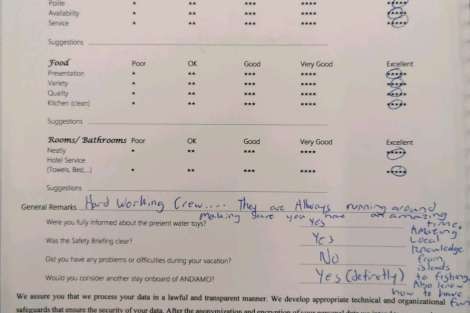 Polite * ** *** **** *****
Availability * ** *** **** *****
Service * ** *** **** *****
Suggestions
Food Poor OK Good Very Good Excellent
Presentation * ** *** **** *****
Variety * ** *** **** *****
Quality * ** *** **** *****
Kitchen (clean) * ** *** **** *****
Suggestions
Rooms/ Bathrooms Poor OK Good Very Good Excellent
Neatly * ** *** **** *****
Hotel Service
(Towels, Best,..) * ** *** **** *****
Suggestions
General Remarks Hard working Crew.... They are Always running around
making sure you have an amazing
time.
Were you fully informed about the present water toys? Yes
Amazing
Was the Safety Briefing clear? Yes
Local
knowledge
Did you have any problems or difficulties during your vacation? No
from
islands
Would you consider another stay onboard of ANDIAMO? Yes (definetly)
to fishing.
Also knew
how to have
fun
We assure you that we process your data in a lawful and transparent manner. We develop appropriate technical and organizational
safeguards that ensure the security of your data. After the anonymization and encryption of your personal data